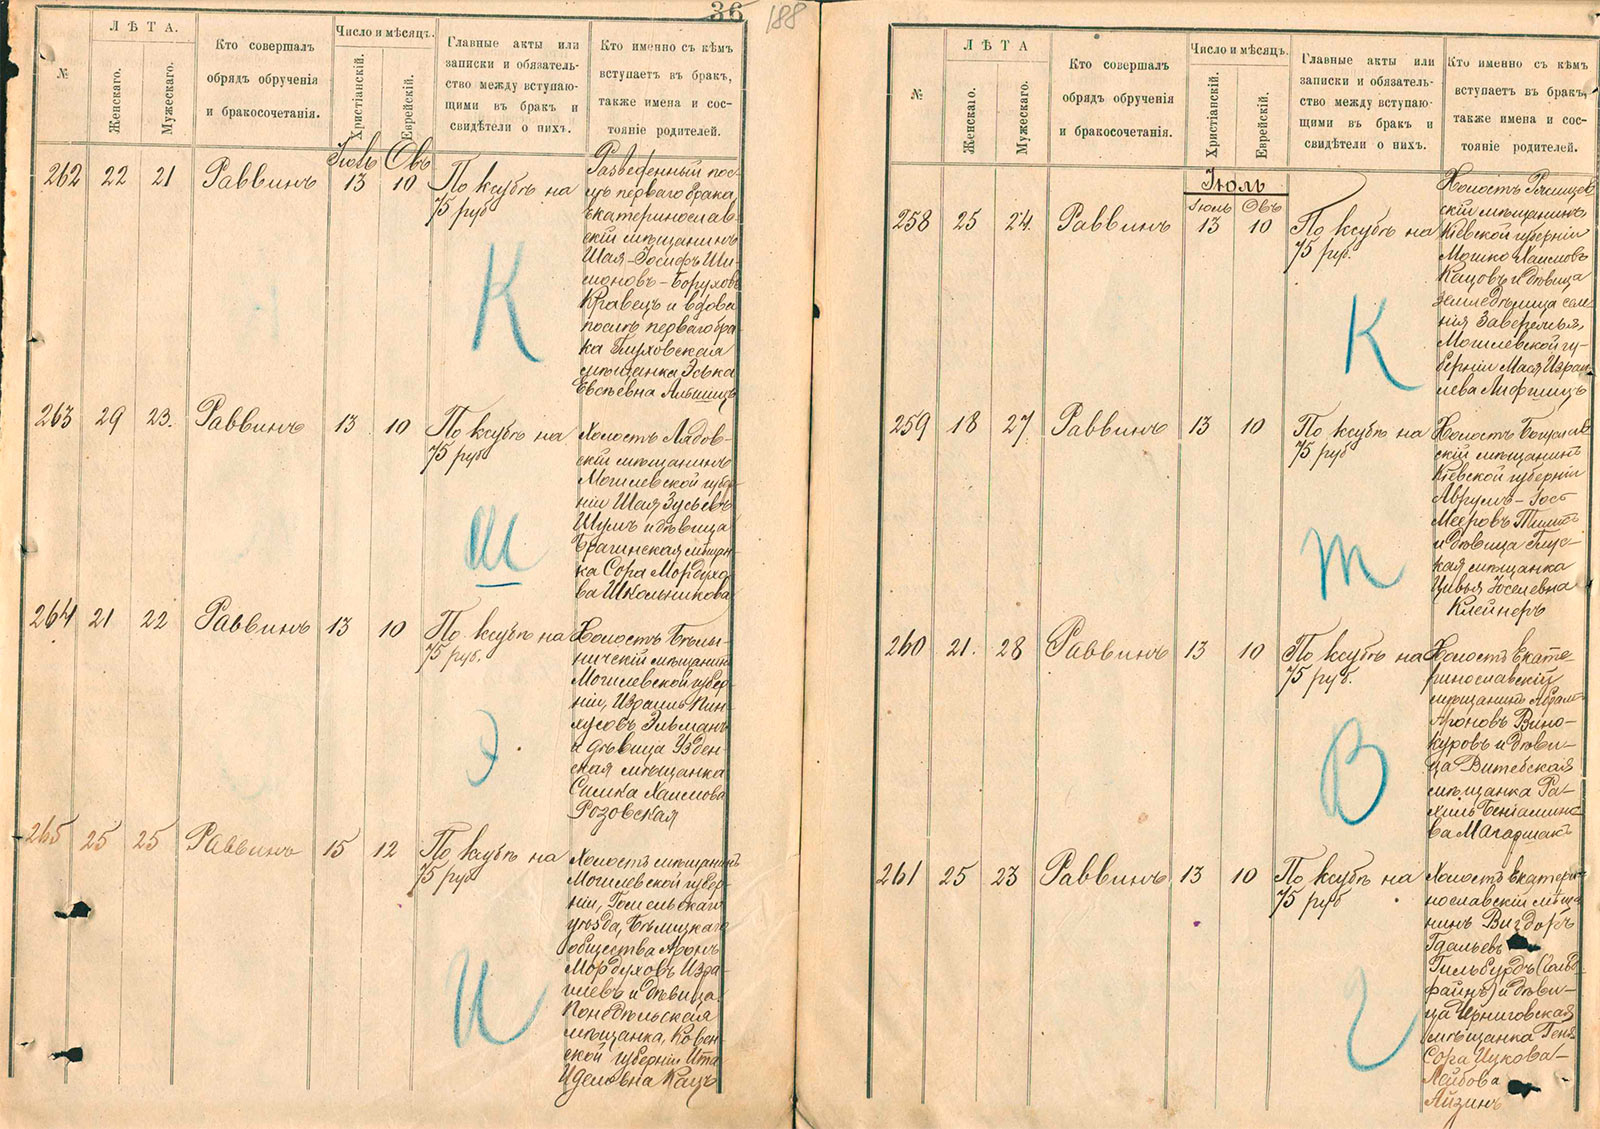 36
188
№
ЛѢТА.
Женскаго.
Мужескаго.
Кто совершалъ
обрядъ обрученія
и бракосочетанія.
Число и мѣсяцъ.
Христіанскій.
Еврейскій.
Главные акты или
записки и обязатель-
ство между вступаю-
щими въ бракъ и
свидѣтели о нихъ.
Кто именно съ кѣмъ
вступаетъ въ бракъ,
также имена и сос-
тояніе родителей.
Іюль Овъ
262 22 21 Раввинъ 13 10 По ксубѣ на
75 руб
Разведенный пос-
лѣ перваго брака
Екатеринослав-
скій мѣщанинъ
Шая-Іосифъ Ши-
моновъ-Боруховъ
Кравецъ и вдова
послѣ перваго бра-
ка Глуховская
мѣщанка Эська
Евсѣевна
К
263 29 23. Раввинъ 13 10 По ксубѣ на
75 руб
Холостъ Лядов-
скій мѣщанинъ
Могилевской губер-
ніи Шая Зусьевъ
Шумъ и дѣвица
Брагинская мѣщан-
ка Сора Мордухо-
ва Школьникова
Ш
264 21 22 Раввинъ 13 10 По ксубѣ на
75 руб.
Холостъ Бѣлы-
ничскій мѣщанинъ
Могилевской губер-
ніи, Израиль Пин-
хусовъ Эльманъ
и дѣвица Узден-
ская мѣщанка
Симка Хаимова
Розовская
Э
265 25 25 Раввинъ 15 12 По ксубѣ на
75 руб
Холостъ мѣщанинъ
Могилевской губер-
ніи, Гомельскаго
уѣзда, Бѣлицкаго
общества Аронъ
Мордуховъ Изра-
илевъ и дѣвица
Понедѣльская
мѣщанка, Ковен-
ской губерніи Ита
Иделовна Кацъ
И
№
ЛѢТА
Женскаго.
Мужескаго.
Кто совершалъ
обрядъ обрученія
и бракосочетанія.
Число и мѣсяцъ.
Христіанскій.
Еврейскій.
Главные акты или
записки и обязатель-
ство между вступаю-
щими въ бракъ и
свидѣтели о нихъ.
Кто именно съ кѣмъ
вступаетъ въ бракъ,
также имена и сос-
тояніе родителей.
Іюль
Іюль Овъ
258 25 24. Раввинъ 13 10 По ксубѣ на
75 руб.
Холостъ Ржищев-
скій мѣщанинъ
Кіевской губерніи
Мошко Хаимовъ
Кацовъ и дѣвица
земледѣлица селе-
нія Заверечья,
Могилевской гу-
берніи Мася Израи-
лева Лифшицъ
К
259 18 27 Раввинъ 13 10 По ксубѣ на
75 руб
Холостъ Богуслав
скій мѣщанинъ
Кіевской губерніи
Аврумъ-Іось
Мееровъ
и дѣвица Глус-
кая мѣщанка
Цивья Юселевна
Клейнеръ
Т
260 21. 28 Раввинъ 13 10 По ксубѣ на
75 руб.
Холостъ Екате-
ринославскій
мѣщанинъ Абрамъ
Ароновъ Вино-
куровъ и дѣви-
ца Витебская
мѣщанка Ра-
хиль Беніамино-
ва Магаршакъ
В
261 25 23 Раввинъ 13 10 По ксубѣ на
75 руб
Холостъ Екатери-
нославскій мѣща
нинъ Вигдоръ
Гдальевъ
Гильбурдъ (Гольд-
файнъ) и дѣви-
ца Черниговская
мѣщанка Геня
Сора Ицкова-
Лейбова
Айзинъ
Г